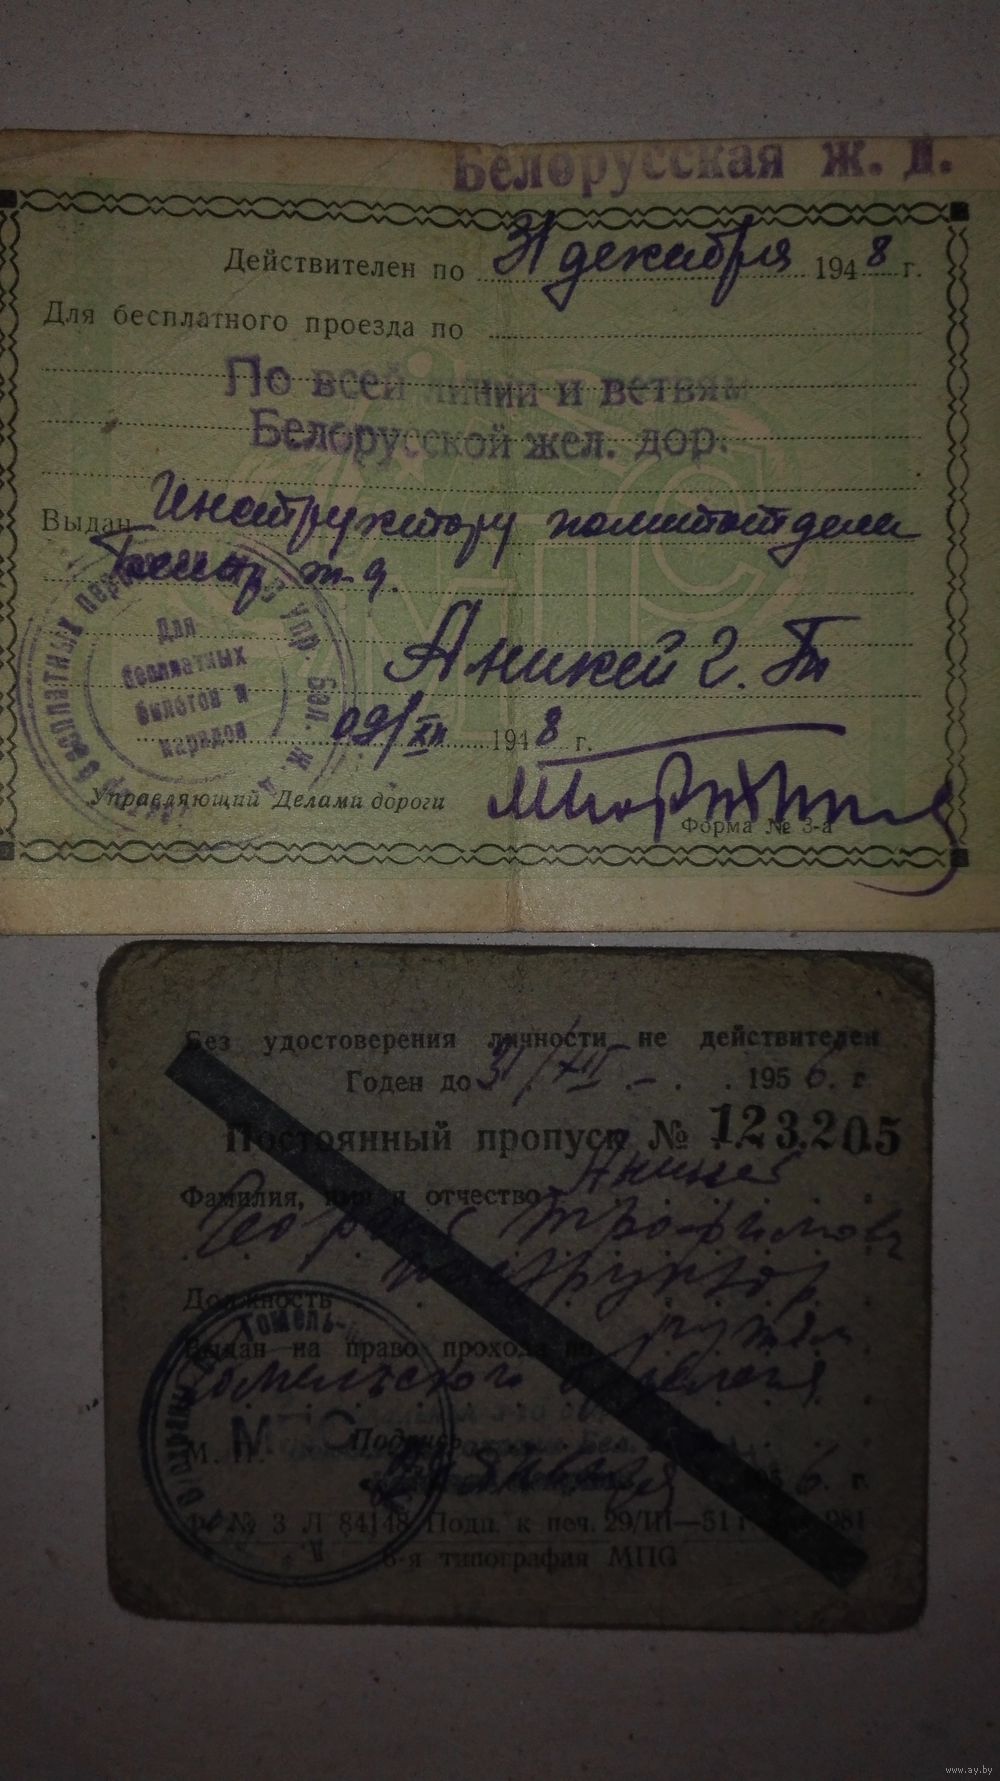 Белорусская ж. д.
Действителен по 31 декабря 1948 г.
Для бесплатного проезда по
По всей линии и ветвям
Белорусской жел. дор.
Выдан Инструктору политотдела
ж. д.
Аникей Г. Т.
Для
бесплатных
билетов и
нарядов
Упр. Бел. ж. д.
09/XII 1948 г.
Управляющий Делами дороги
Форма № 3-а
Без удостоверения личности не действителен
Годен до 31/XII 1956 г.
Постоянный пропуск № 123205
Фамилия, имя и отчество Аникей
Георгий Трофимович
Должность инструктор
Выдан на право прохода по путям
Гомельского отделения
МПС
М. П. Подпись
6 г.
Ф. № 3 Л 84148 Подп. к печ. 29/III—51 г. 981
6-я типография МПС
www.ay.by